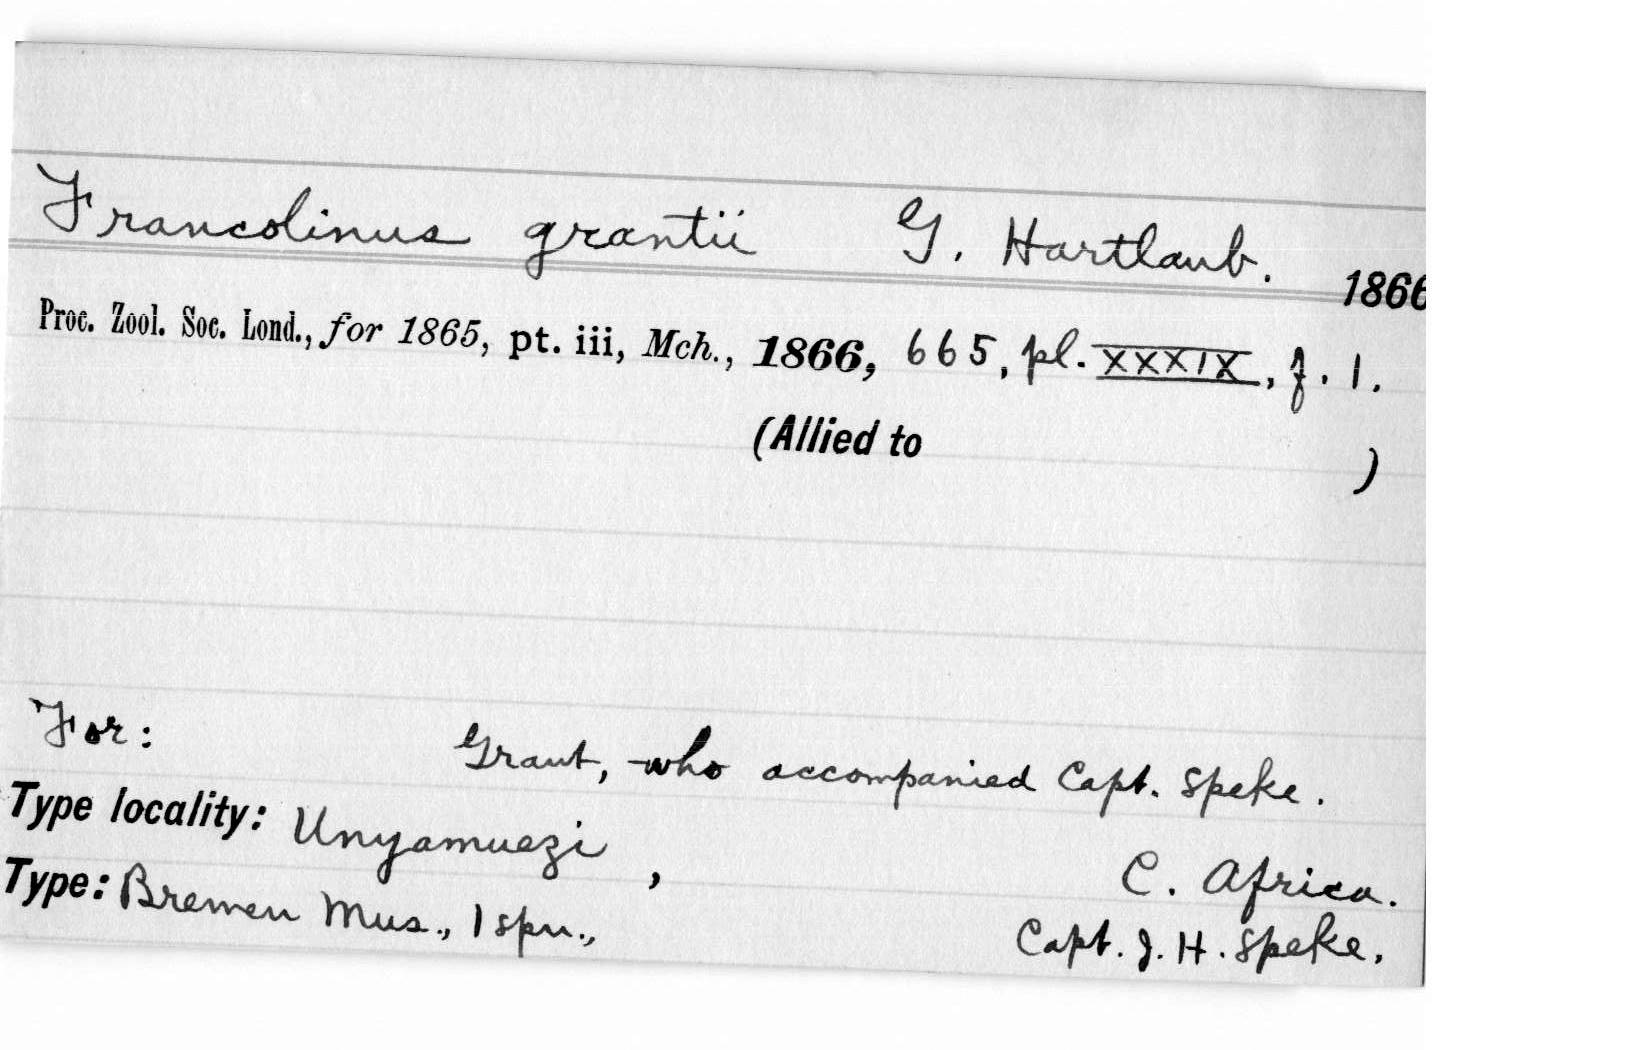 Francolinus grantii G. Hartlaub. 1866
Proc. Zool. Soc. Lond., for 1865, pt. iii, Mch., 1866, 665, pl. XXXIX, f. 1.
(Allied to )
For: Grant, who accompanied Capt. Speke.
Type locality: Unyamuezi, C. Africa.
Type: Bremen Mus., 1 spn., Capt. J. H. Speke.